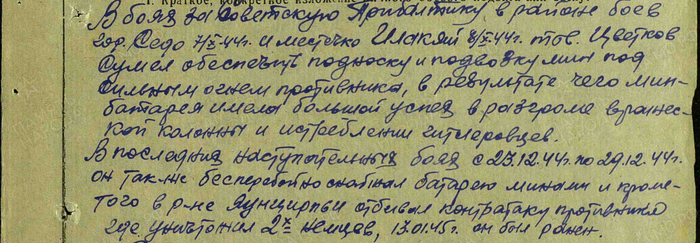 1. Краткое, конкретное изложение
В боях за Советскую Прибалтику, в районе боев
гор. Седо 7/X-44г. и местечко Шакяй 8/X-44г. тов. Цветков
сумел обеспечить подноску и подвозку мин под
сильным огнем противника, в результате чего мин-
батарея имела большой успех в разгроме вражес-
кой колонны и истреблении гитлеровцев.
В последних наступательных боях с 23.12.44г. по 29.12.44г.
он также бесперебойно снабжал батарею минами и кроме-
того в р-не отбивал контратаку противника
где уничтожил 2х немцев, 13.01.45г. он был ранен.